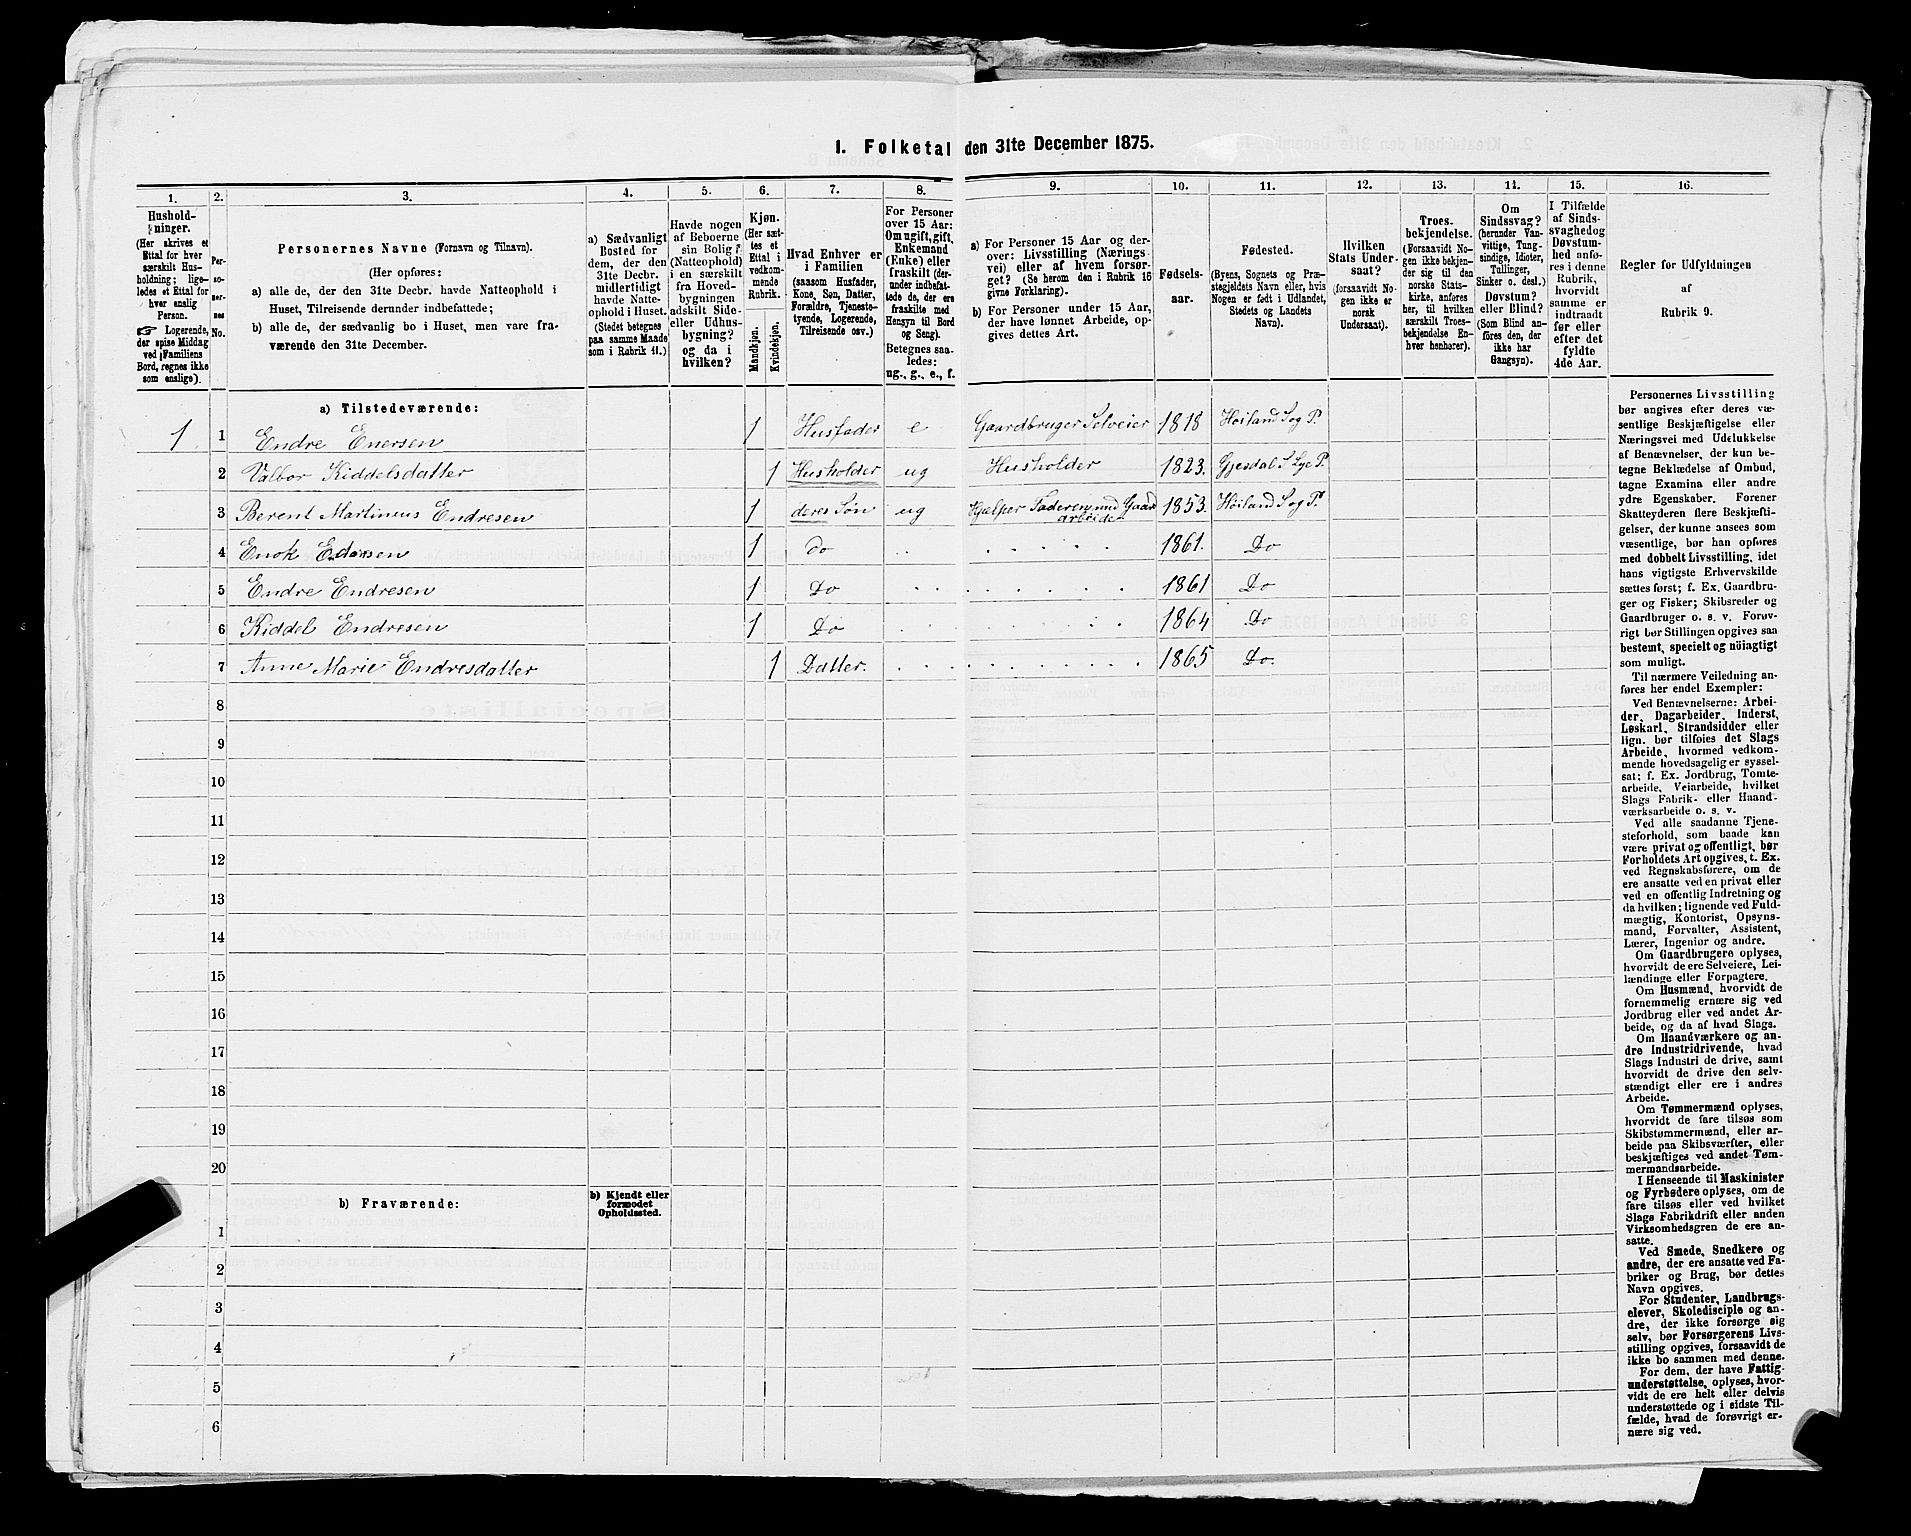 1. Folketal den 31te December 1875.
1. 2. 3. 4. 5. 6. 7. 8. 9. 10. 11. 12. 13. 14. 15. 16.
Hushold-
ninger.
(Her skrives et
Ettal for hver
særskilt Hus-
holdning; lige-
ledes et Ettal for
hver enslig
Person.
☞ Logerende,
der spise Middag
ved Familiens
Bord, regnes ikke
som enslige).
Per-
so-
ner-
nes
No.
Personernes Navne (Fornavn og Tilnavn).
(Her opføres:
a) alle de, der den 31te Decbr. havde Natteophold i
Huset, Tilreisende derunder indbefattede;
b) alle de, der sædvanlig bo i Huset, men vare fra-
værende den 31te December.
a) Sædvanligt
Bosted for
dem, der den
31te Decbr.
midlertidigt
havde Natte-
ophold i Huset.
(Stedet betegnes
paa samme Maade
som i Rubrik 11.)
Havde nogen
af Beboerne
sin Bolig
(Natteophold)
i en særskilt
fra Hoved-
bygningen
adskilt Side-
eller Udhus-
bygning?
og da i
hvilken?
Kjøn.
(Her sæt-
tes et
Ettal i
vedkom-
mende
Rubrik.
Mandkjøn.
Kvindekjøn.
Hvad Enhver er
i Familien
(saasom Husfader,
Kone, Søn, Datter,
Forældre, Tjeneste-
tyende, Logerende,
Tilreisende osv.)
For Personer
over 15 Aar:
Om ugift, gift,
Enkemand
(Enke) eller
fraskilt (der-
under indbefat-
tede de, der ere
fraskilte med
Hensyn til Bord
og Seng).
Betegnes saa-
ledes:
ug., g., e., f.
a) For Personer 15 Aar og der-
over: Livsstilling (Nærings-
vei) eller af hvem forsør-
get? (Se herom den i Rubrik 16
givne Forklaring).
b) For Personer under 15 Aar,
der have lønnet Arbeide, op-
gives dettes Art.
Fødsels-
aar.
Fødested.
(Byens, Sognets og Præ-
stegjeldets Navn eller, hvis
Nogen er født i Udlandet,
Stedets og Landets
Navn).
Hvilken
Stats Under-
saat?
(forsaavidt No-
gen ikke er
norsk
Undersaat).
Troes-
bekjendelse.
(Forsaavidt No-
gen ikke bekjen-
der sig til den
norske Stats-
kirke, anføres
her, til hvilken
særskilt Troes-
bekjendelse En-
hver henhører).
Om
Sindssvag?
(herunder Van-
vittige, Tung-
sindige, Idioter,
Tullinger,
Sinker o. desl.)
Døvstum?
eller Blind?
(Som Blind an-
føres den, der
ikke har
Gangsyn).
I Tilfælde
af Sinds-
svaghed og
Døvstum-
hed anfø-
res i denne
Rubrik,
hvorvidt
samme er
indtraadt
før eller
efter det
fyldte
4de Aar.
Regler for Udfyldningen
af
Rubrik 9.
a) Tilstedeværende:
1 1 Endre Enersen 1 Husfader e Gaardbruger Selveier 1818 Høiland S og P.
2 Valbor Kiddelsdatter 1 Husholder ug Husholder 1823. Gjesdal S Lye P.
3 Berent Martinius Endresen 1 deres Søn ug Hjælper Faderen med Gaard
arbeide 1853. Høiland S og P.
4 Enok Endresen 1 do 1861. Do
5 Endre Endresen 1 Do 1861 Do
6 Kiddel Endresen 1 Do 1864 Do
7 Anne Marie Endresdatter 1 Datter. 1865 Do.
8
9
10
11
12
13
14
15
16
17
18
19
20
b) Fraværende:
b) Kjendt eller
formodet
Opholdssted.
1
2
3
4
5
6
Personernes Livsstilling
bør angives efter deres væ-
sentlige Beskjæftigelse eller
Næringsvei med Udelukkelse
af Benævnelser, der kun be-
tegne Beklædelse af Ombud,
tagne Examina eller andre
ydre Egenskaber. Forener
Skatteyderen flere Beskjæfti-
gelser, der kunne ansees som
væsentlige, bør han opføres
med dobbelt Livsstilling, idet
hans vigtigste Erhvervskilde
sættes først; f. Ex. Gaardbru-
ger og Fisker; Skibsreder og
Gaardbruger o. s. v. Forøv-
rigt bør Stillingen opgives saa
bestemt, specielt og nöiagtigt
som muligt.
Til nærmere Veiledning an-
føres her endel Exempler:
Ved Benævnelserne: Arbei-
der, Dagarbeider, Inderst,
Løskarl, Strandsidder eller
lign. bør tilføies det Slags
Arbeide, hvormed vedkom-
mende hovedsagelig er syssel-
sat; f. Ex. Jordbrug, Tomte-
arbeide, Veiarbeide, hvilket
Slags Fabrik- eller Haand-
værksarbeide o. s. v.
Ved alle saadanne Tjene-
steforhold, som baade kan
være privat og offentligt, bør
Forholdets Art opgives, t. Ex.
ved Regnskabsførere, om de
ere ansatte ved en privat eller
ved en offentlig Indretning og
da hvilken; lignende ved Fuld-
mægtig, Kontorist, Opsyns-
mand, Forvalter, Assistent,
Lærer, Ingeniør og andre.
Om Gaardbrugere oplyses,
hvorvidt de ere Selveiere, Lei-
lændinge eller Forpagtere.
Om Husmænd, hvorvidt de
fornemmelig ernære sig ved
Jordbrug eller ved andet Ar-
beide, og da af hvad Slags.
Om Haandværkere og an-
dre Industridrivende, hvad
Slags Industri de drive, samt
hvorvidt de drive den selv-
stændigt eller ere i andres
Arbeide.
Om Tømmermænd oplyses,
hvorvidt de fare tilsøs som
Skibstømmermænd, eller ar-
beide paa Skibsværfter, eller
beskjæftiges ved andet Tøm-
mermandsarbeide.
I Henseende til Maskinister
og Fyrbødere oplyses, om de
fare tilsøs eller ved hvilket
Slags Fabrikdrift eller anden
Virksomhedsgren de ere an-
satte.
Ved Smede, Snedkere og
andre, der ere ansatte ved Fa-
briker og Brug, bør dettes
Navn opgives.
For Studenter, Landbrugs-
elever, Skoledisciple og an-
dre, der ikke forsørge sig
selv, bør Forsørgerens Livs-
stilling opgives, forsaavidt de
ikke bo sammen med denne.
For dem, der have Fattig-
understøttelse, oplyses, hvor-
vidt de ere helt eller delvis
understøttede og i sidste Til-
fælde, hvad de forøvrigt er-
nære sig ved.